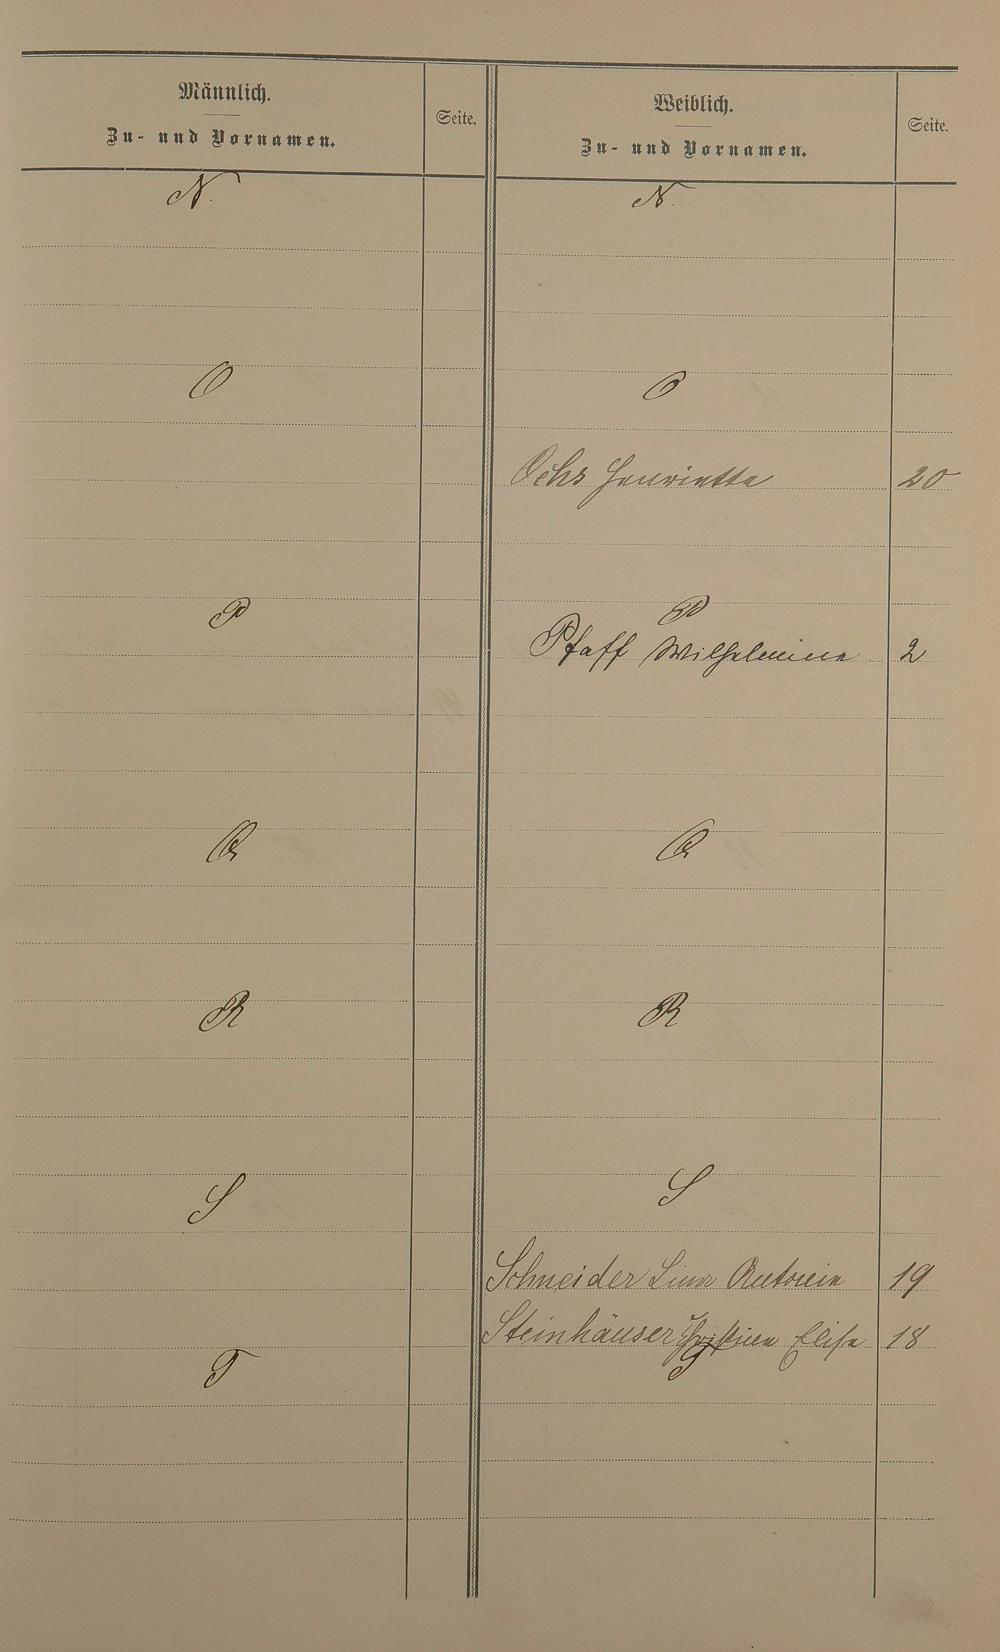 Männlich.
Zu- und Vornamen.
Seite.
N.
O
P
Q
R
S
T
Weiblich.
Zu- und Vornamen.
Seite.
N.
O
Ochs Henriette 20
P
Pfaff Wilhelmine 2
Q
R
S
Schneider Lina 19
Steinhäuser Christine Elise 18
T